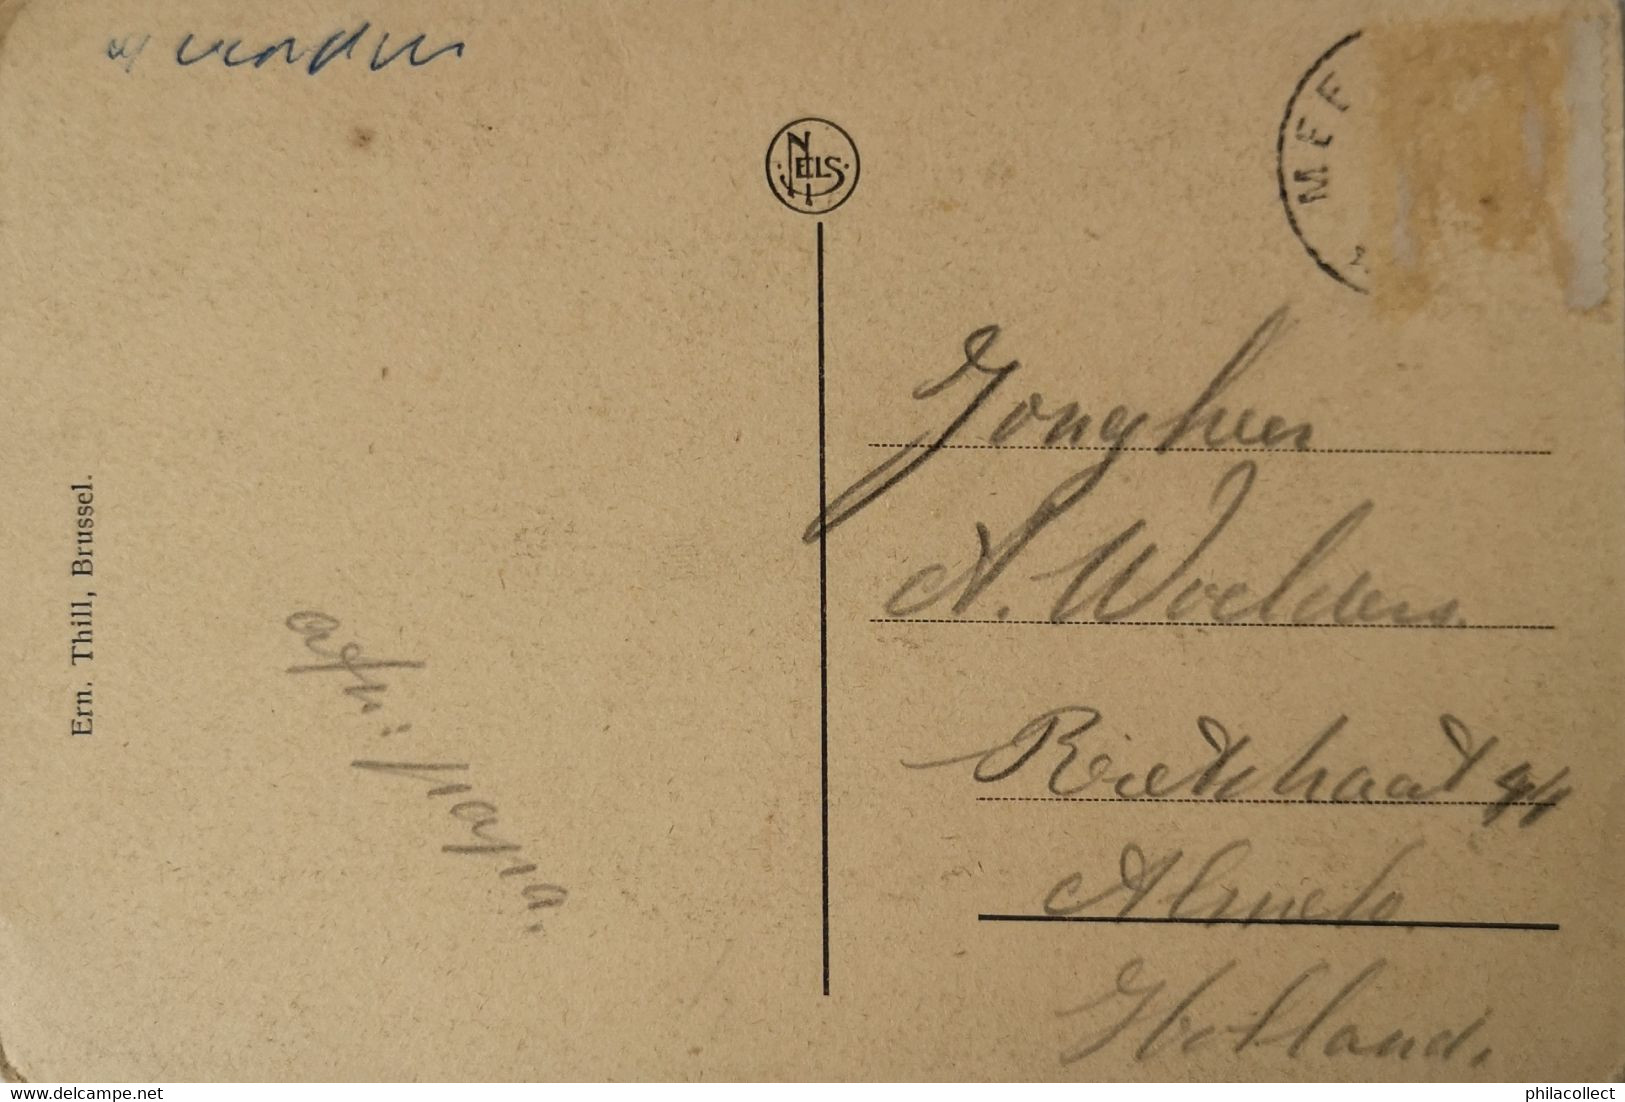 NELS
MEE
Ern. Thill, Brussel.
Jongheer
A. Woelders.
Rietstraat 44
Almelo
Holland.
afz: papa.
delcampe.net
philacollect